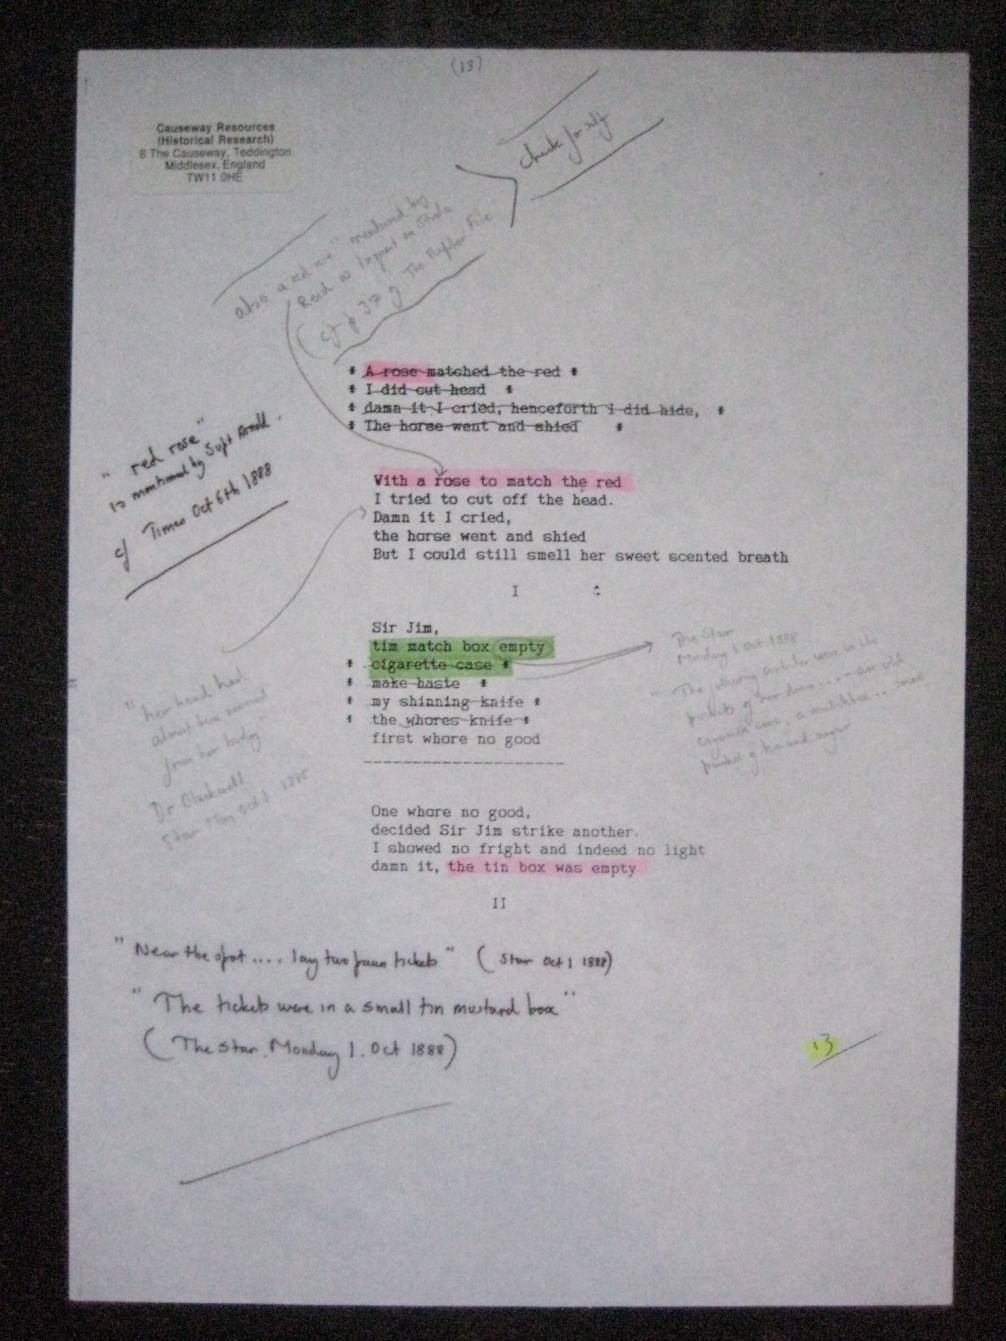 (13)
Causeway Resources
(Historical Research)
8 The Causeway, Teddington
Middlesex, England
TW11 0HE
check for self
also "a red rose" mentioned by
Read as
(cf p 37 of The Ripper File
* A rose matched the red *
* I did cut head *
* damn it I cried, henceforth i did hide, *
* The horse went and shied *
"red rose"
is mentioned by Supt Arnold.
cf Times Oct 6th 1888
With a rose to match the red
I tried to cut off the head.
Damn it I cried,
the horse went and shied
But I could still smell her sweet scented breath
I :
Sir Jim,
tim match box empty
* cigarette case *
* make haste *
* my shinning knife *
* the whores knife *
first whore no good
The Star
Monday 1 Oct 1888
"The following articles were in the
pockets of her dress .... an old
cigarette case, a matchbox ... some
packet of tea and sugar
"her head had
almost been severed
from her body"
Dr Blackwell
Star Mon Oct 1
One whore no good,
decided Sir Jim strike another.
I showed no fright and indeed no light
damn it, the tin box was empty
II
"Near the spot .... lay two pawn tickets" (Star Oct 1 1888)
"The tickets were in a small tin mustard box"
(The Star. Monday 1. Oct 1888)
13